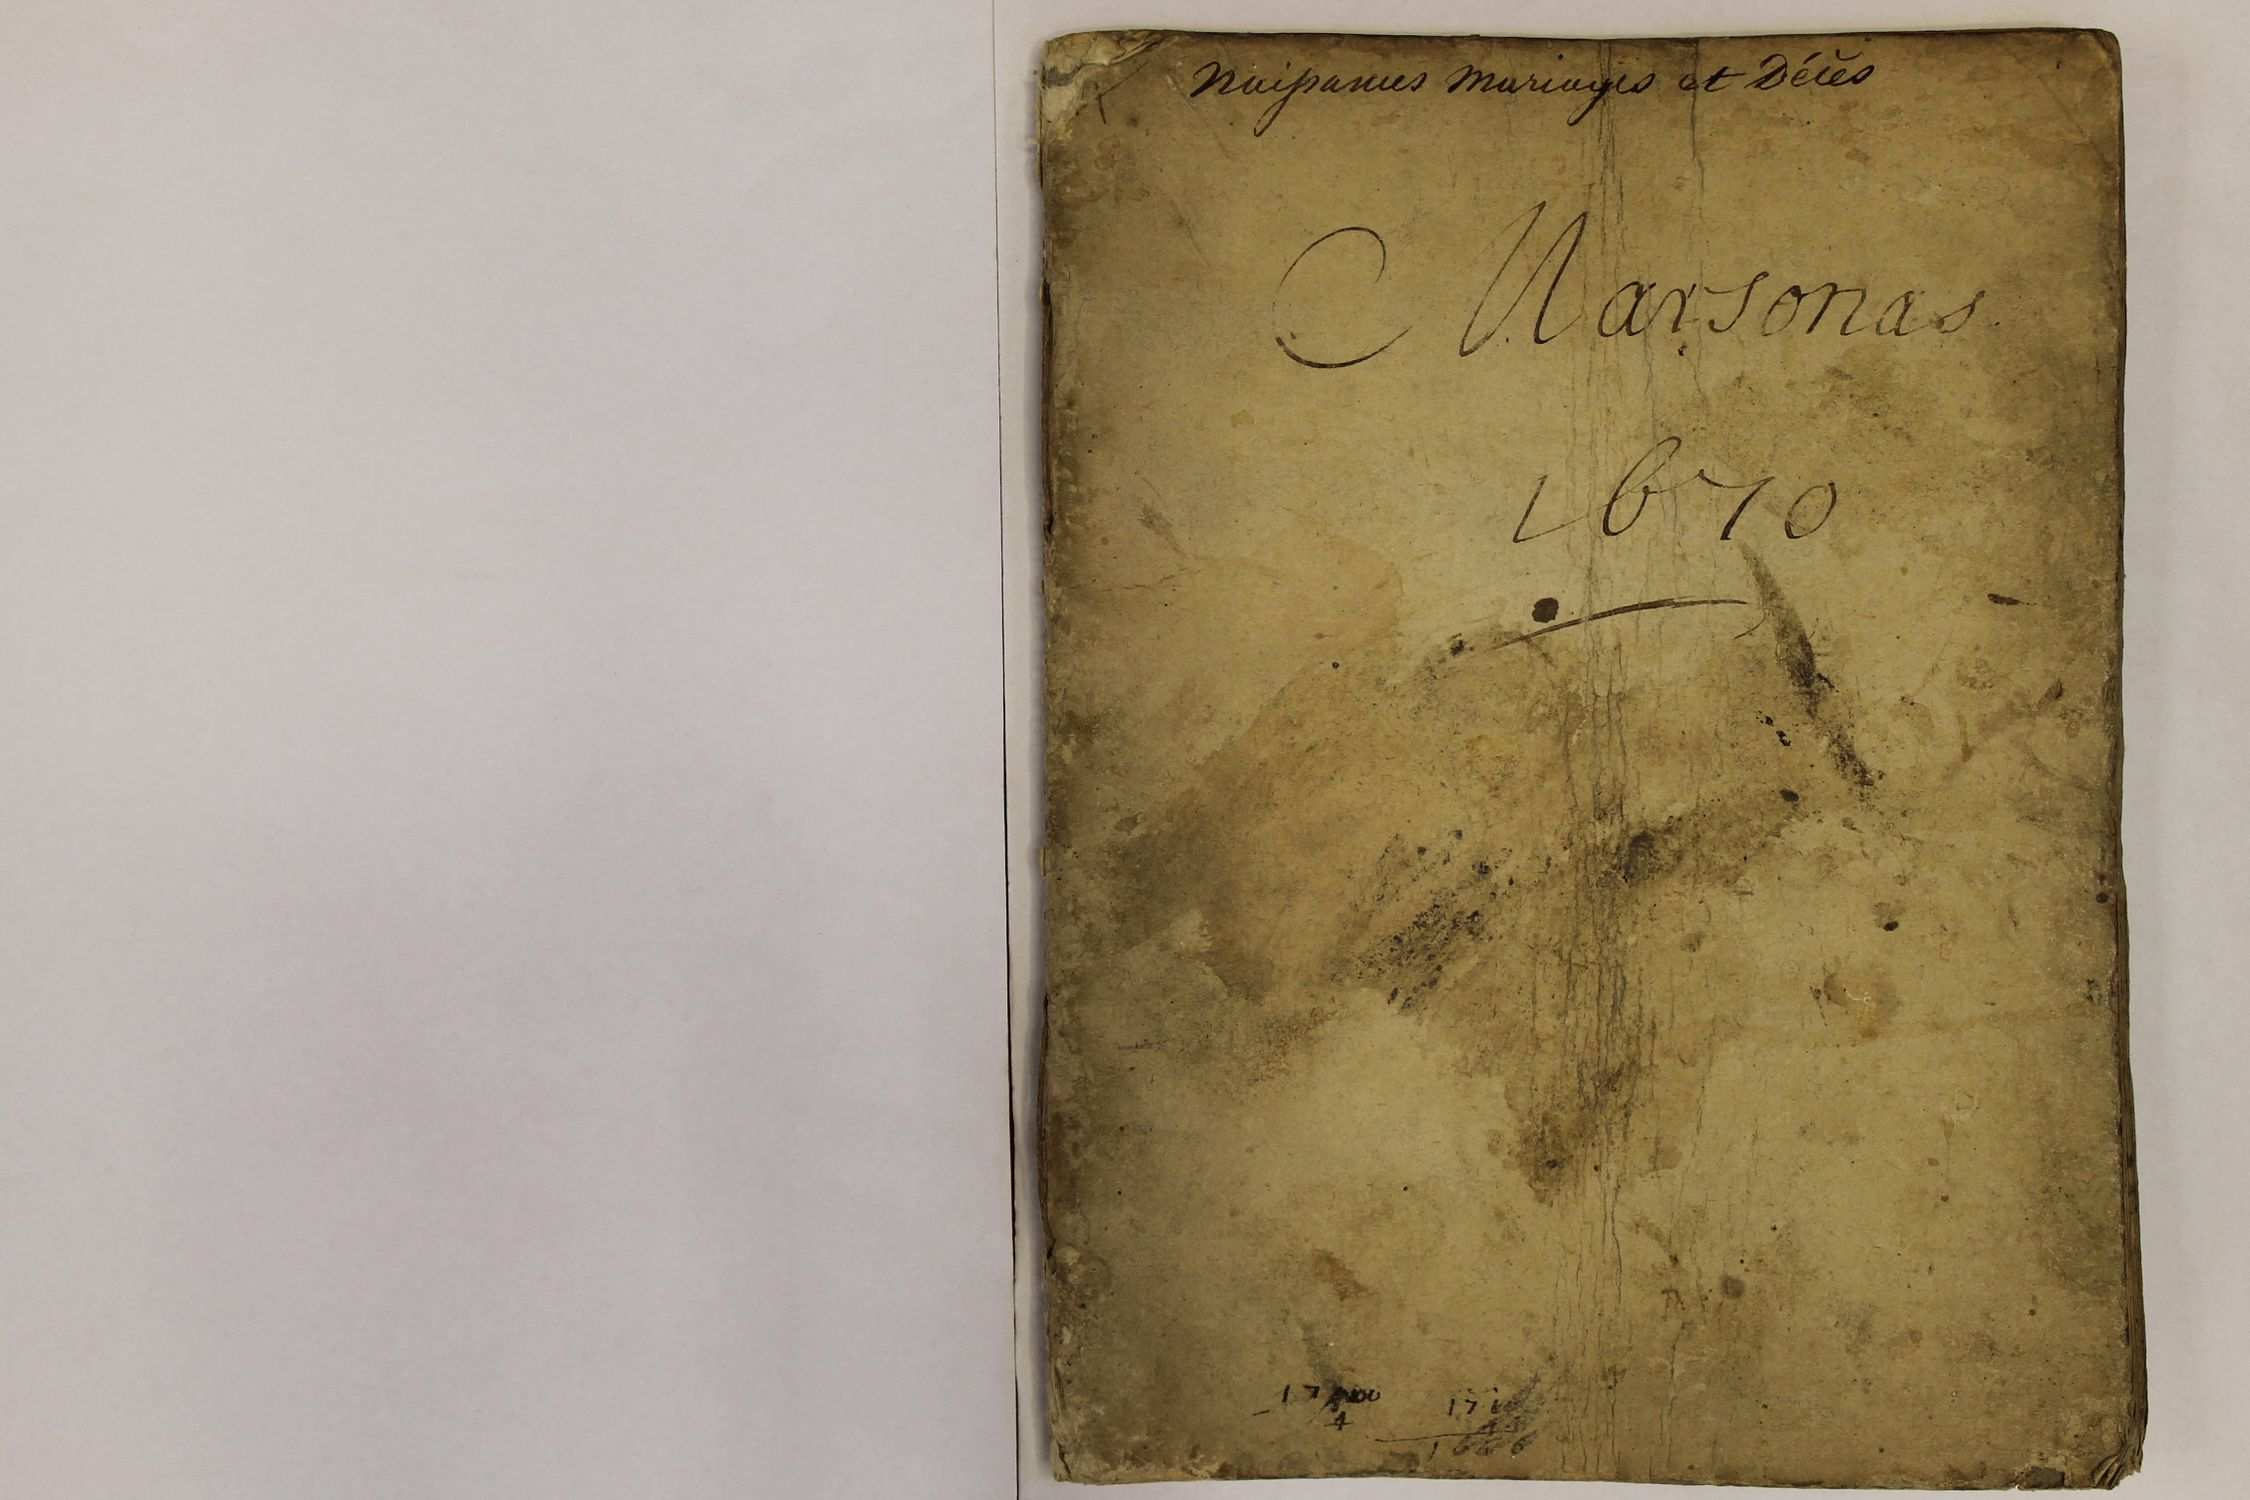 Naissances Mariages et Décès
Marsonas
1670
4